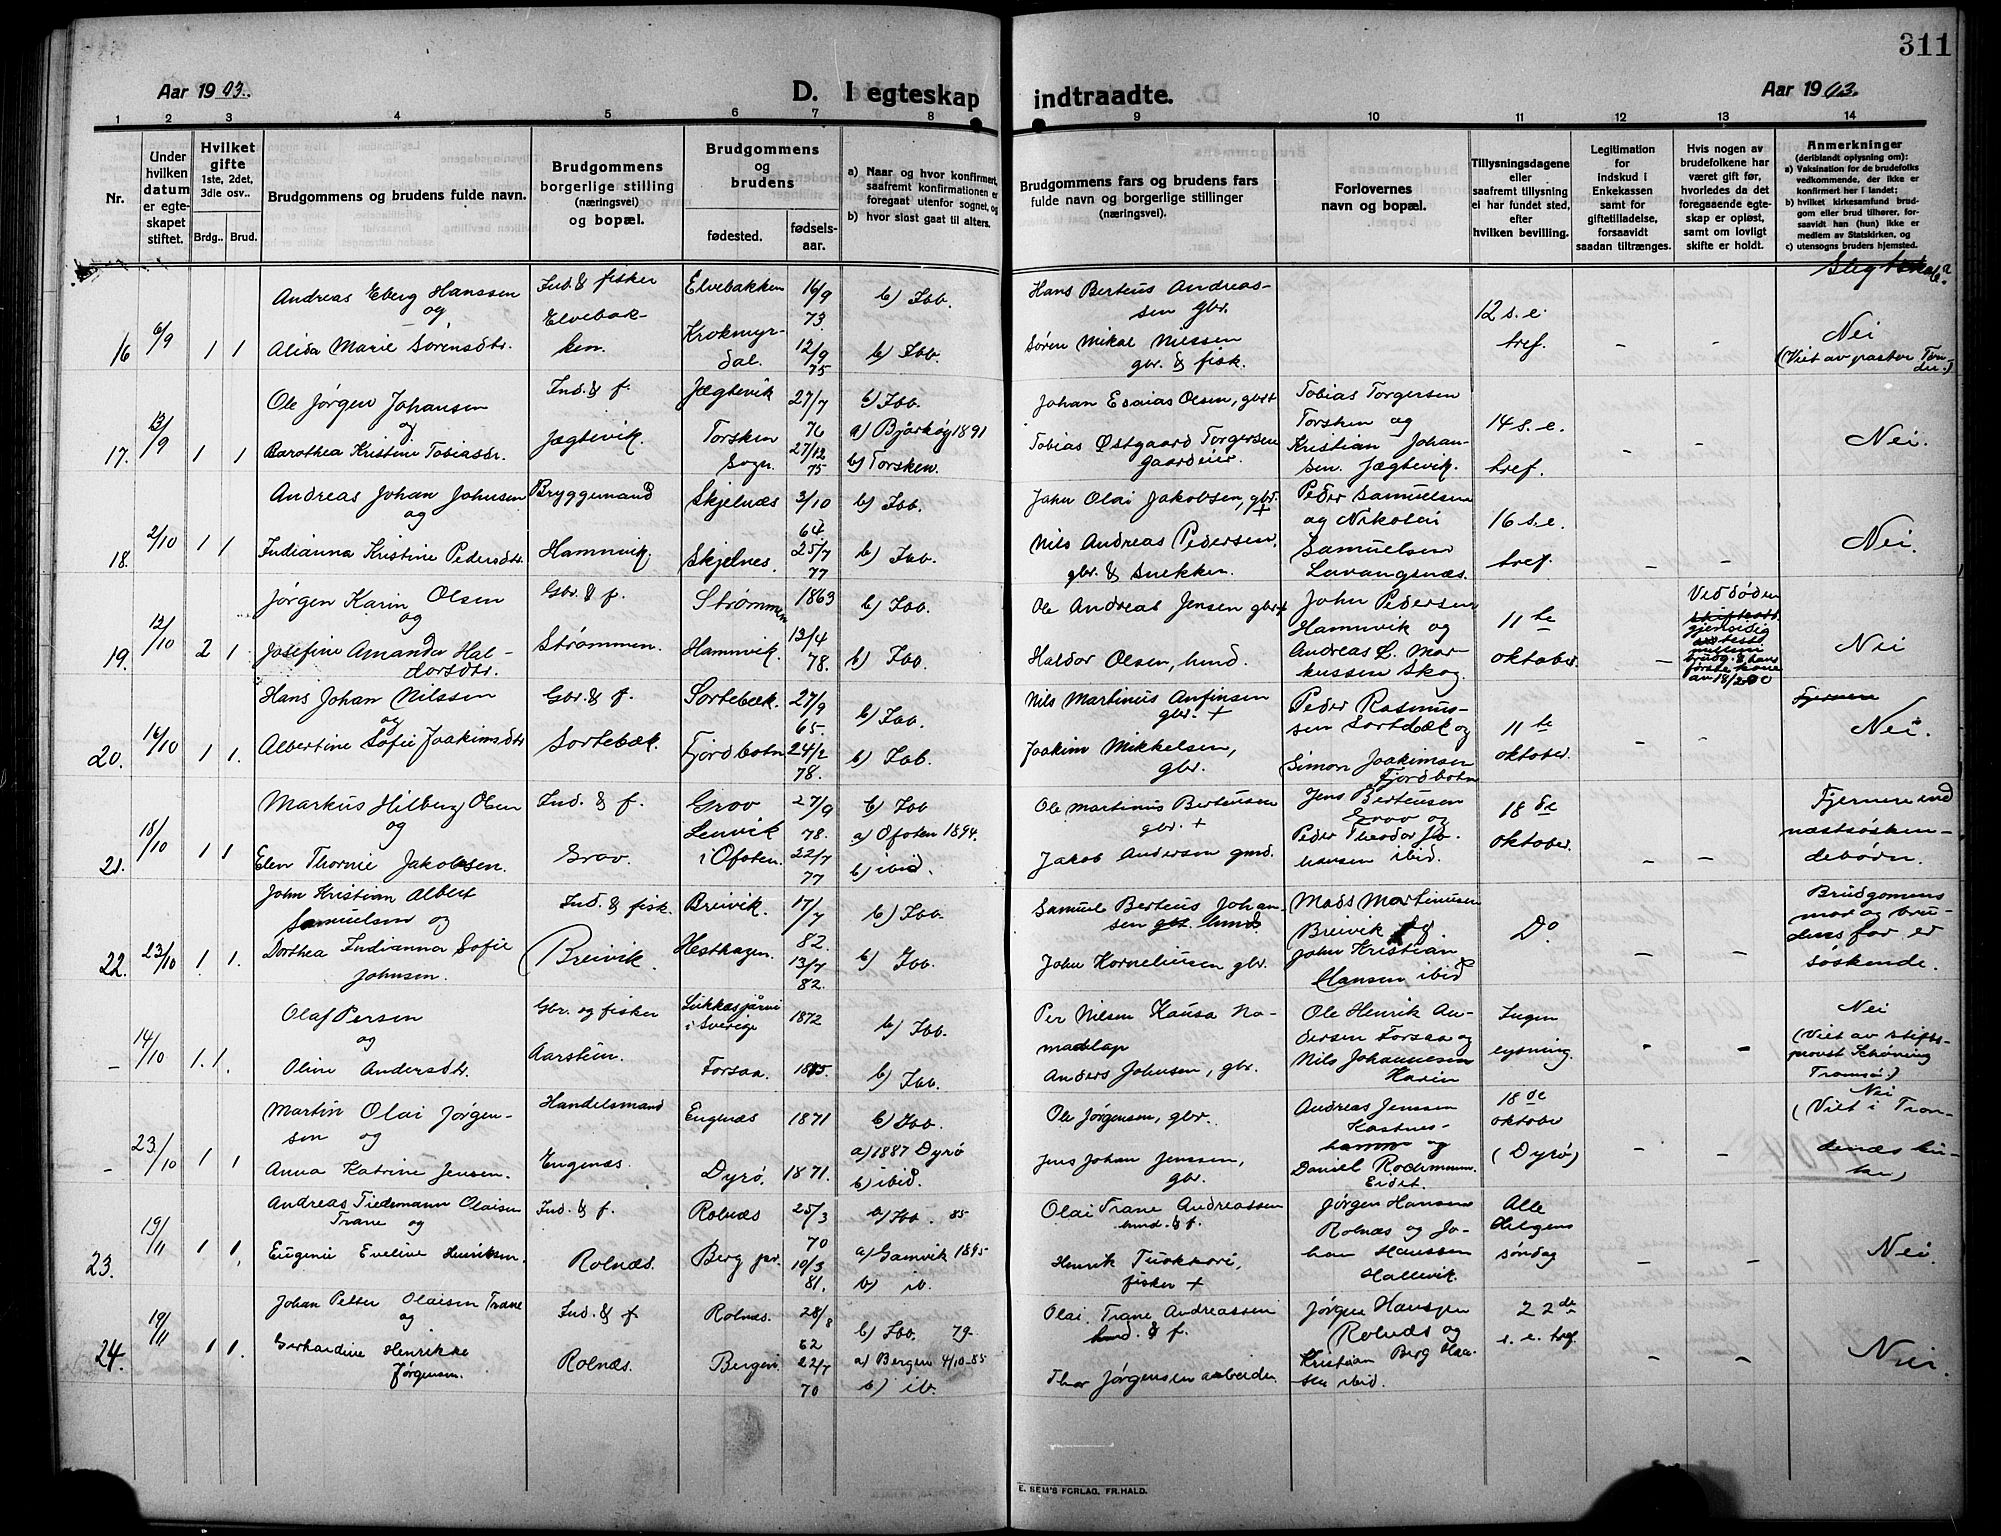 311
Aar 1903.
D. I egteskap indtraadte.
Aar 1903.
1 2 3 4 5 6 7 8 9 10 11 12 13 14
Nr.
Under hvilken datum er egteskapet stiftet.
Hvilket gifte 1ste, 2det, 3dle osv..
Brdg.. Brud.
Brudgommens og brudens fulde navn.
Brudgommens borgerlige stilling (næringsvei) og bopæl.
Brudgommens og brudens
fødested. fødselsaar.
a) Naar og hvor konfirmert, saafremt konfirmationen er foregaat utenfor sognet, og
b) hvor sisst gaat til alters.
Brudgommens fars og brudens fars fulde navn og borgerlige stillinger (næringsvei).
Forlovernes navn og bopæl.
Tillysningsdagene eller saafremt tillysning ei har fundet sted, efter hvilken bevilling.
Legitimation for indskud i Enkekassen samt for giftetilladelse, forsaavidt saadan tiltrænges.
Hvis nogen av brudefolkene har været gift før, hvorledes da det foregaaende egteskap er opløst, samt om lovligt skifte er holdt.
Anmerkninger (deriblandt oplysning om):
a) Vaksination for de brudefolks vedkommende, der ikke er konfirmert her i landet;
b) hvilket kirkesamfund brudgom eller brud tilhører, forsaavidt han (hun) ikke er medlem av Statskirken, og
c) utensogns bruders hjemsted.
16 6/9 1 1
Andreas Eberg Hanssen
og
Alida Marie Sørensdtr.
Ind. & fisker
Elvebakken.
Elvebakken 16/9 73
Krokmyrdal. 12/9 75
b) Ibb.
b) Ibb.
Hans Berteus Andreassen gbr.
Søren Mikal Nilssen
gbr. & fisk.
12 s. e. tref.
- -
Nei
17. 13/9 1 1
Ole Jørgen Johansen
og
Dorothea Kristine Tobiasdr.
Ind. & f.
Jægtevik.
Jægtevik 27/7 76
Torsken Sogn 27/12 75
b) Ibb.
a) Bjarkøy 1891
b) Torsken.
Johan Esaias Olsen, gbr+
Tobias Østgaard Torgersen
gaardeier.
Tobias Torgersen
Torsken og
Kristian Johansen. Jægtevik.
14 s. e. tref.
- -
Nei.
18. 2/10 1 1
Andreas Johan Johnsen
og
Indianna Kristine Pedersdtr.
Bryggemand
Hamnvik.
Skjelnæs 3/10 64.
Skjelnes. 25/7 77
b) Ibb.
b) Ibb.
John Olai Jakobsen, gbr. +
Nils Andreas Pedersen,
gbr. & snekker.
Peder Samuelsen
og Nikolai
Samuelsen
Lavangsnæs.
16 s. e. tref.
- -
Nei.
19. 12/10 2 1
Jørgen Karin Olsen
og
Josefine Amanda Haldorsdtr.
Gbr. & f.
Strømmen.
Strømmen 1863
Hamnvik. 13/4 78.
b) Ibb.
b) Ibb.
Ole Andreas Jensen gbr+
Haldor Olsen, hmd.
John Pedersen
Hamnvik og
Andreas L. Markussen Skog.
11te oktober.
-
Ved døden
gjensidig
brudg. & hans
første kone
Nei
20. 16/10 1 1.
Hans Johan Nilssen
og
Albertine Sofie Joakimsdtr
Gbr. & f.
Sortebæk.
Sortebæk. 27/9 65.
Fjordbotn 24/2 78.
b) Ibb.
b) Ibb.
Nils Martinus Anfinsen
gbr. +
Joakim Mikkelsen,
gbr.
Peder Rasmussen Sortbæk og
Simon Joakimsen
Fjordbotn
11te oktober.
- -
Nei.
21. 18/10 1 1
Markus Hilberg Olsen
og
Elen Thornie Jakobsen.
Ind. & f.
Grov.
Grov 27/9 78.
Lenvik i Ofoten. 22/7 77
b) Ibb
a) Ofoten 1894.
b) ibid.
Ole Martinus Berteusen
gbr. +
Jakob Andersen gmd.
Jens Berteusen
Grov og
Peder Theodor Johansen ibid.
18de oktober.
- -
Fjernere end
næstsøskendebørn.
22. 23/10 1. 1.
John Kristian Albert
Samuelsen og
Dorthea Indianna Sofie
Johnsen.
Ind. & fisk.
Breivik.
Breivik. 17/7 82.
Hesthagen. 13/7 82.
b) Ibb.
b) Ibb.
Samuel Berteus Johansen
John Korneliusen gbr.
Mads Martinusen
Breivik og
John Kristian
Hansen ibid
Do
- -
Brudgomens
mor og brudens far er
søskende.
- 14/10 1. 1.
Olaf Persen
og
Oline Andersdtr.
Gbr. og fisker
Aarstein.
Jukkasjärvi i Sverige 1872
Forsaa.
b) Ibb.
b) Ibb.
Per Nilsen Kausa Nomadlap
Anders Johnsen, gbr.
Ole Henrik Andersen Forsaa og
Nils Johannesen
Ingen lysning.
- -
Nei
(Viet av stiftsprovst Schøning
Tromsø.)
- 23/10 1 1
Martin Olai Jørgensen og
Anna Katrine Jensen.
Handelsmand
Engenæs.
Engenæs 1871
Dyrø. 1871.
b) Ibb.
a) 1887 Dyrø
b) ibid.
Ole Jørgensen, gbr.
Jens Johan Jenssen,
gbr.
Andreas Jenssen
Kastneshamn og
Daniel
18de oktober
(Dyrø)
- -
Nei
(Viet i Trondenæs kirke)
23. 19/11 1 1.
Andreas Tiedemann Olaisen
Trane og
Eugenie Eveline Henriksen.
Ind. & f.
Rolnæs.
Rolnæs 25/3 70
Berg pr. 10/3 81.
b) Ibb. 85
a) Gamvik 1895
b) ib.
Olai Trane Andreassen
hmd. & f.
Henrik
fisker +
Jørgen Hansen
Rolnæs og Johan Hanssen
Hallevik.
Alle
helgens
søndag
- -
Nei.
24. 19/11 1 1.
Johan Petter Olaisen Trane
og
Gerhardine Henrikke
Jørgensen.
Ind. & f
Rolnæs.
Rolnæs. 28/8 62
Bergen. 22/7 70
b) Ibb. 79.
a) Bergen 4/10-85
b) ib.
Olai Trane Andreassen
hmd. & f.
Thor Jørgensen arbeider
Jørgen Hanssen
Rolnæs og
Kristian Berg Hansen ibid.
22de
s. e. tref.
- -
Nei
E. SEM'S FORLAG, FR.HALD.